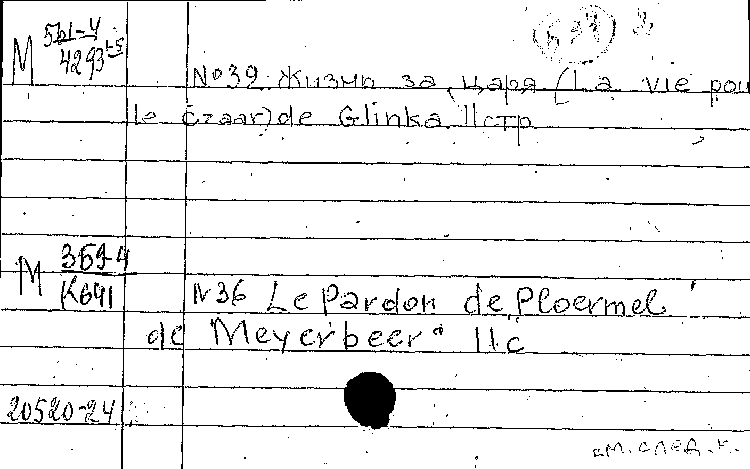 M 561-4
4293
№39 Жизнь за царя (La vie pou
le czaar) de Glinka 11стр
M 369-4
K691
N36 Le Pardon de Ploermel
de Meyerbeer" 11с
20520-24
см. след. к.